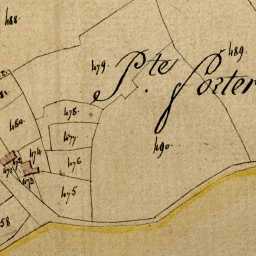 488.
479.
Pte Porter
489.
478.
477
476
475
480.
474
473
490.
58